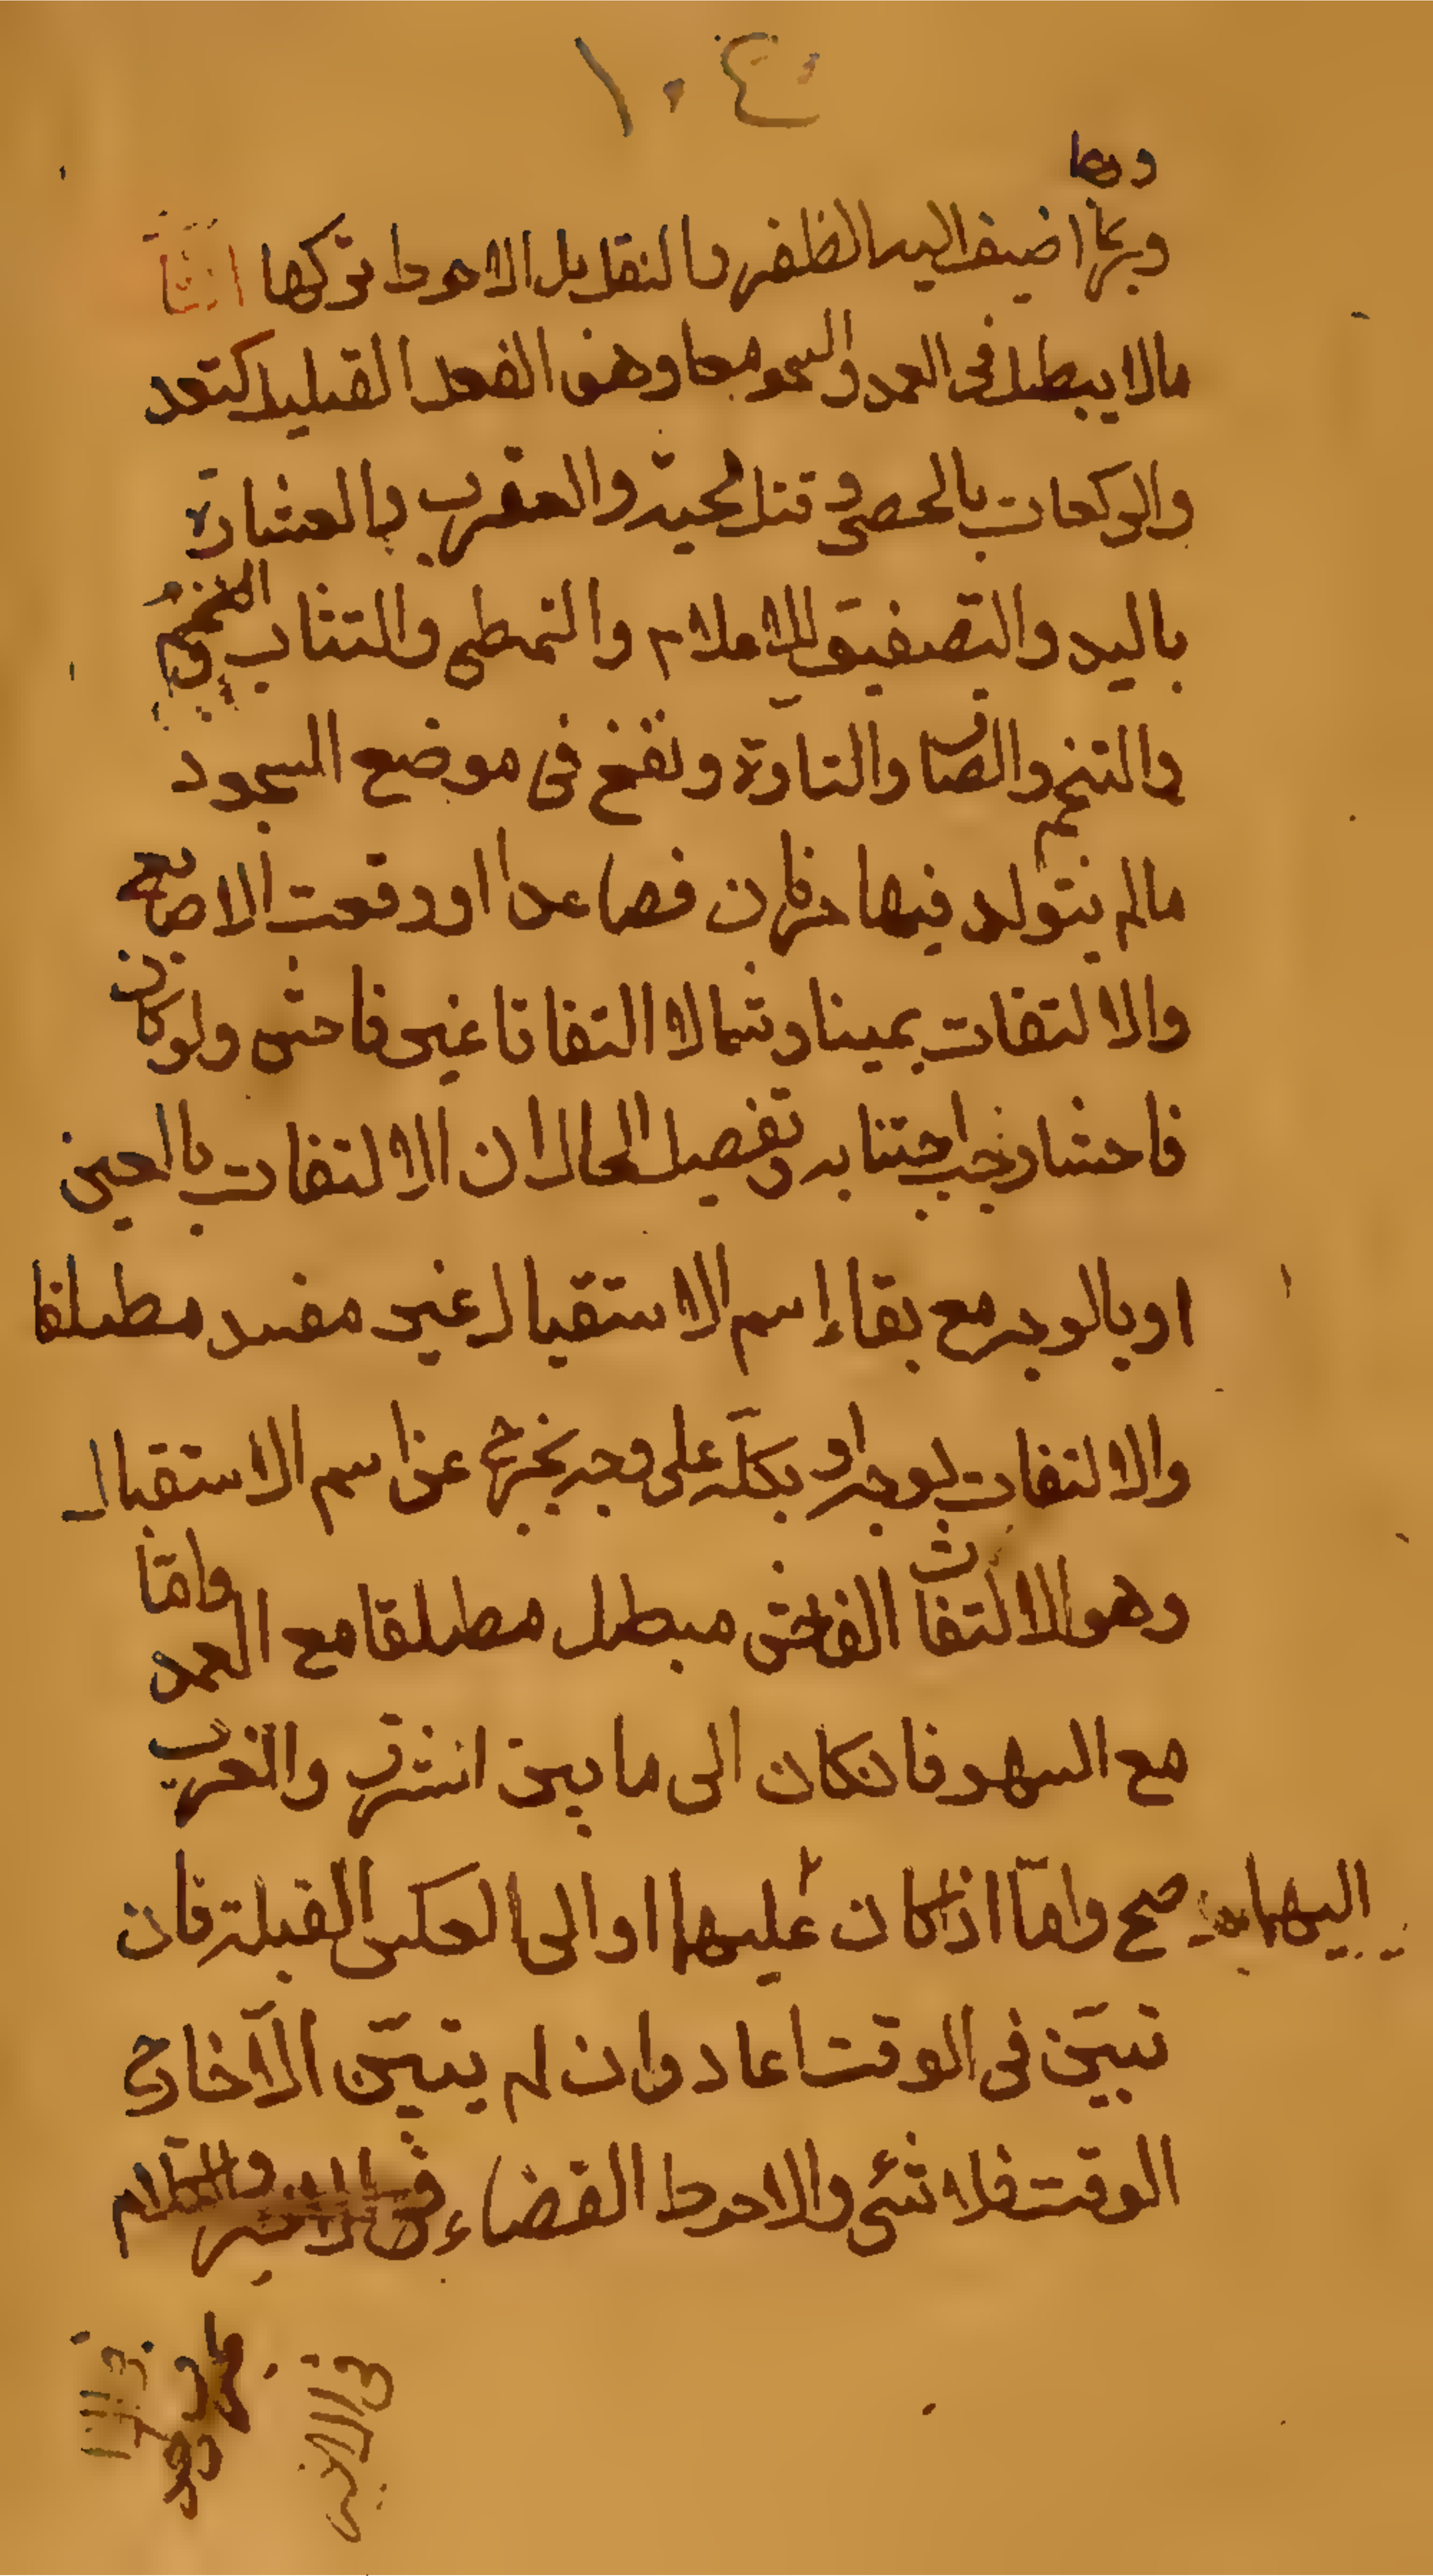 ١٠٤
وربما اضيف اليه الظفر بالنقل بل الاحوط تركها
مالا يبطل فى العمد والسهو معا وهو الفعل القليل كتعد
والركعات بالحصى وقتل الحية والعقرب والاشارة
باليد والتصفيق للاعلام والتمطى والتثاب
والتنخم والبصاق والتاوة ونفخ فى موضع السجود
مالم يتولد فيها حرفان فصاعدا او رقعت الاصابع
والالتفات يمينا وشمالا التفاتا غير فاحش ولو كان
فاحشا وجب اجتنابه وتفصيل الحال ان الالتفات بالعين
او بالوجه مع بقاء اسم الاستقبال غير مفسد مطلقا
والالتفات بوجه او بكلّه على وجه يخرج عن اسم الاستقبال
وهو الالتفات الفاحش مبطل مطلقا مع العمد وامّا
مع السهو فانكان الى ما بين المشرق والمغرب
صح وامّا اذا كان عليهما او الى العكس القبلة فان
اليهما
تبيّن فى الوقت اعاد وان لم يتبيّن الّا خارج
الوقت فلا شئ والاحوط القضاء
فى الاخير